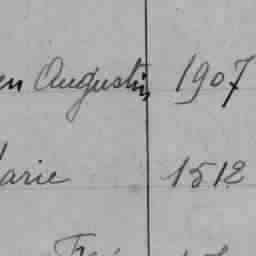 en Augustin 1907
arie 1512